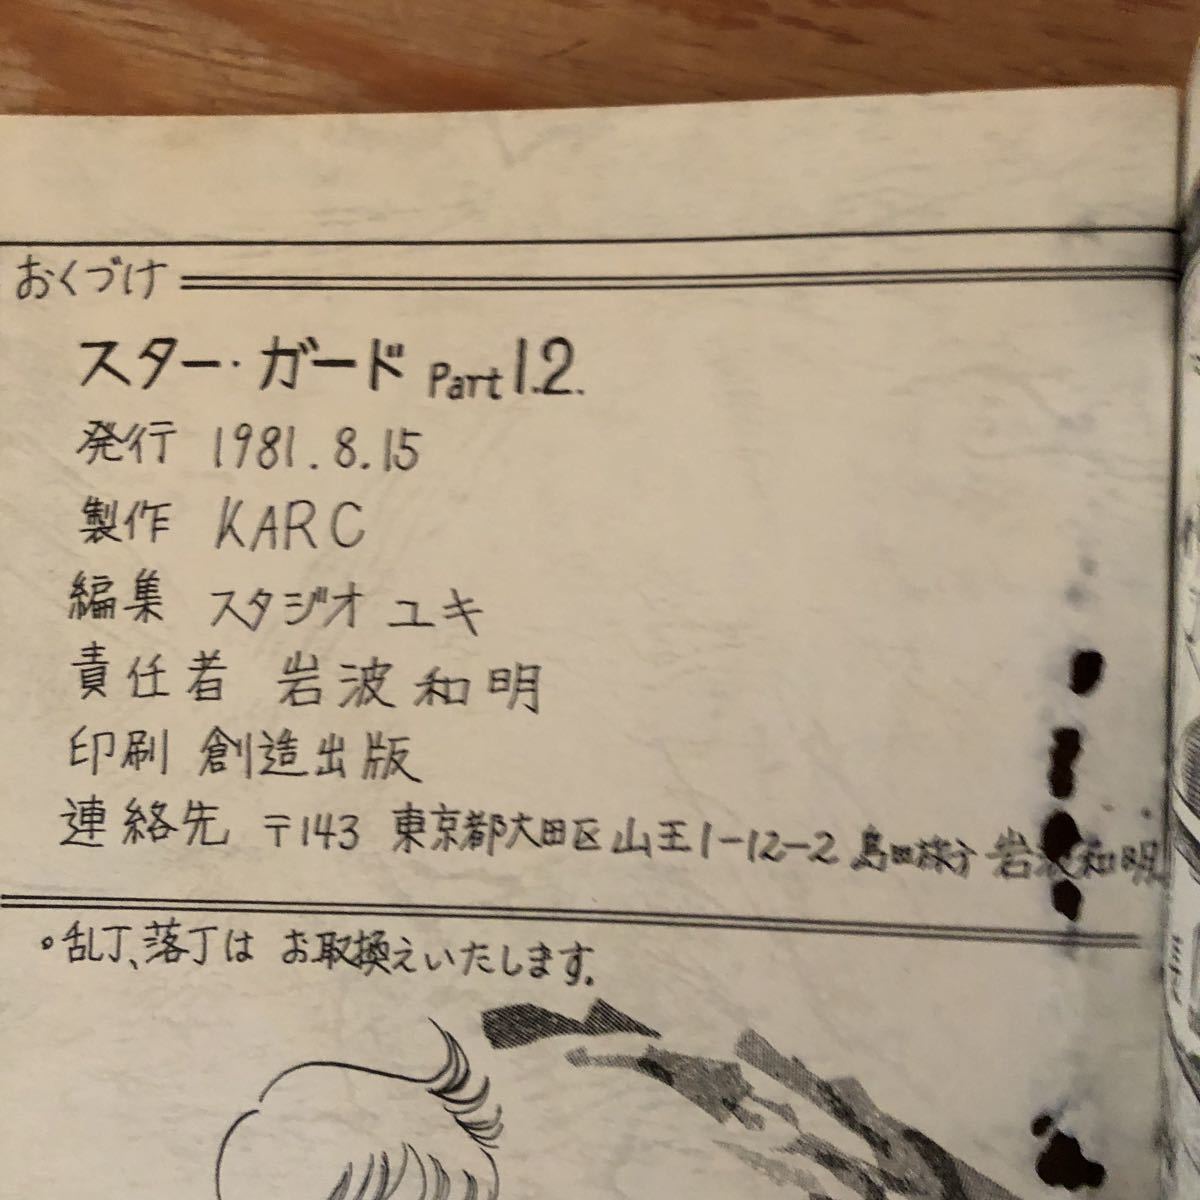 おくづけ
スター・ガード Part 1.2.
発行 1981.8.15
製作 KARC
編集 スタジオ ユキ
責任者 岩波和明
印刷 創造出版
連絡先 〒143 東京都大田区山王1-12-2 島田旅方 岩波和明
。乱丁、落丁は お取換えいたします.